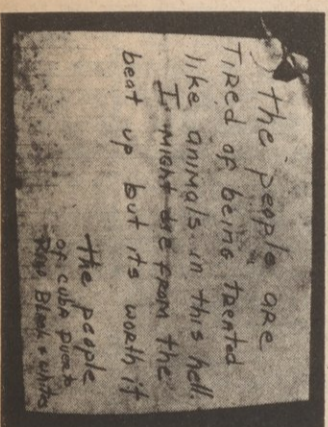 the people are
TIRED of being treated
like animals in this hell.
I might die from the
beat up but its worth it
the people
of cuba Puerto
Rico Black & Whites